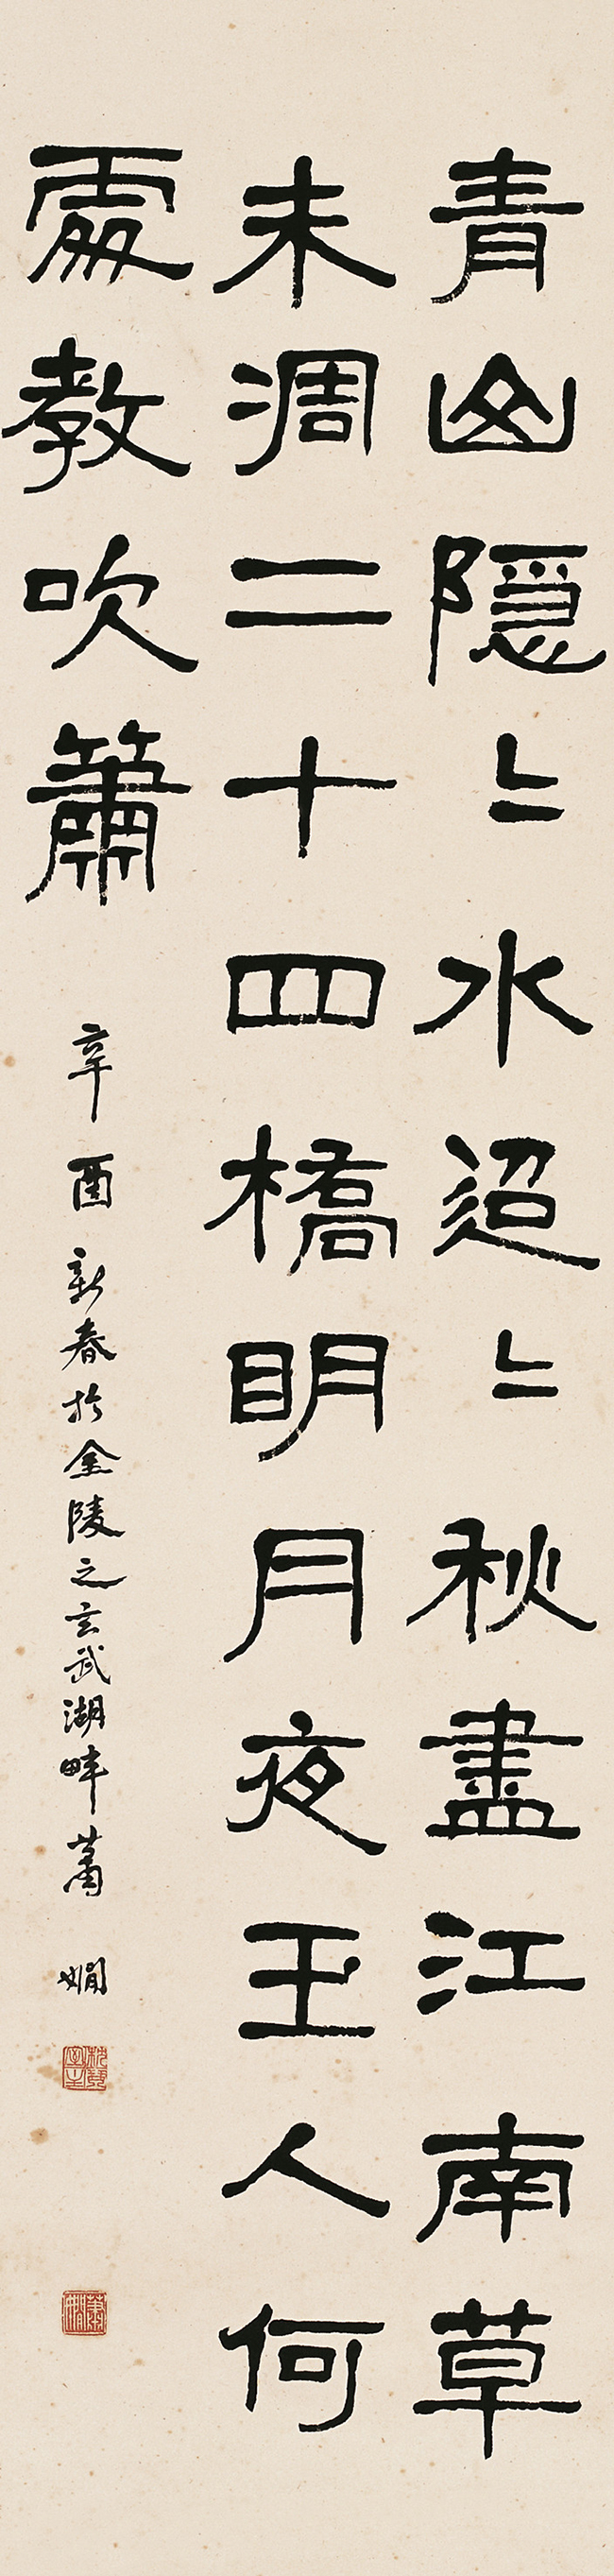 青山隱〻水迢〻秋盡江南草
未凋二十四橋明月夜玉人何
處教吹簫
辛酉新春於金陵之玄武湖畔蕭嫻
枕琴室主
蕭嫻